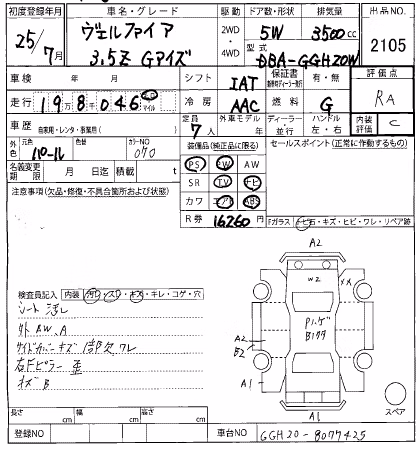 初度登録年月 車名・グレード 駆動 ドア数・形状 排気量 出品NO.
25/7月 ヴェルファイア 3.5Z Gアイズ 2WD・4WD 5W 3500cc 2105
型式 DBA-GGH20W
車検 年 月 シフト IAT 保証書 有・無 評価点 RA
走行 198046 冷房 AAC 燃料 G
車歴 自家用・レンタ・事業用( ) 定員 7人 外車モデル 年 ディーラー・並行 ハンドル 左・右 内装評価 C
外色 元色 パール 色替 カラーNO 070
装備品(純正品に限る) セールスポイント(正常に作動するもの)
名義変更期限 月 日迄 積載 t
PS PW AW
SR TV ナビ
カワ エアB ABS
R券 16260円
注意事項(欠品・修復・不具合箇所および状態)
Fガラス トビ石・キズ・ヒビ・ワレ・リペア跡
A2
W2
A2
B2
A1
A1
スペア
検査員記入 内装 ヨゴレ・スレ・キズ・キレ・コゲ・穴
シート 汚レ
外 BW、A
右Fピラー 歪
長さ cm 幅 cm 高さ cm
登録NO 車台NO GGH20-8077425